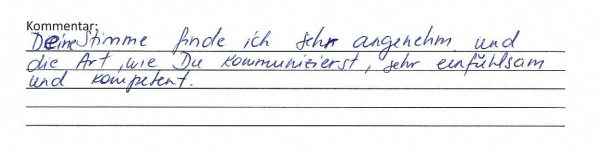 Kommentar:
Deine Stimme finde ich sehr angenehm und
die Art, wie Du kommunizierst, sehr einfühlsam
und kompetent.